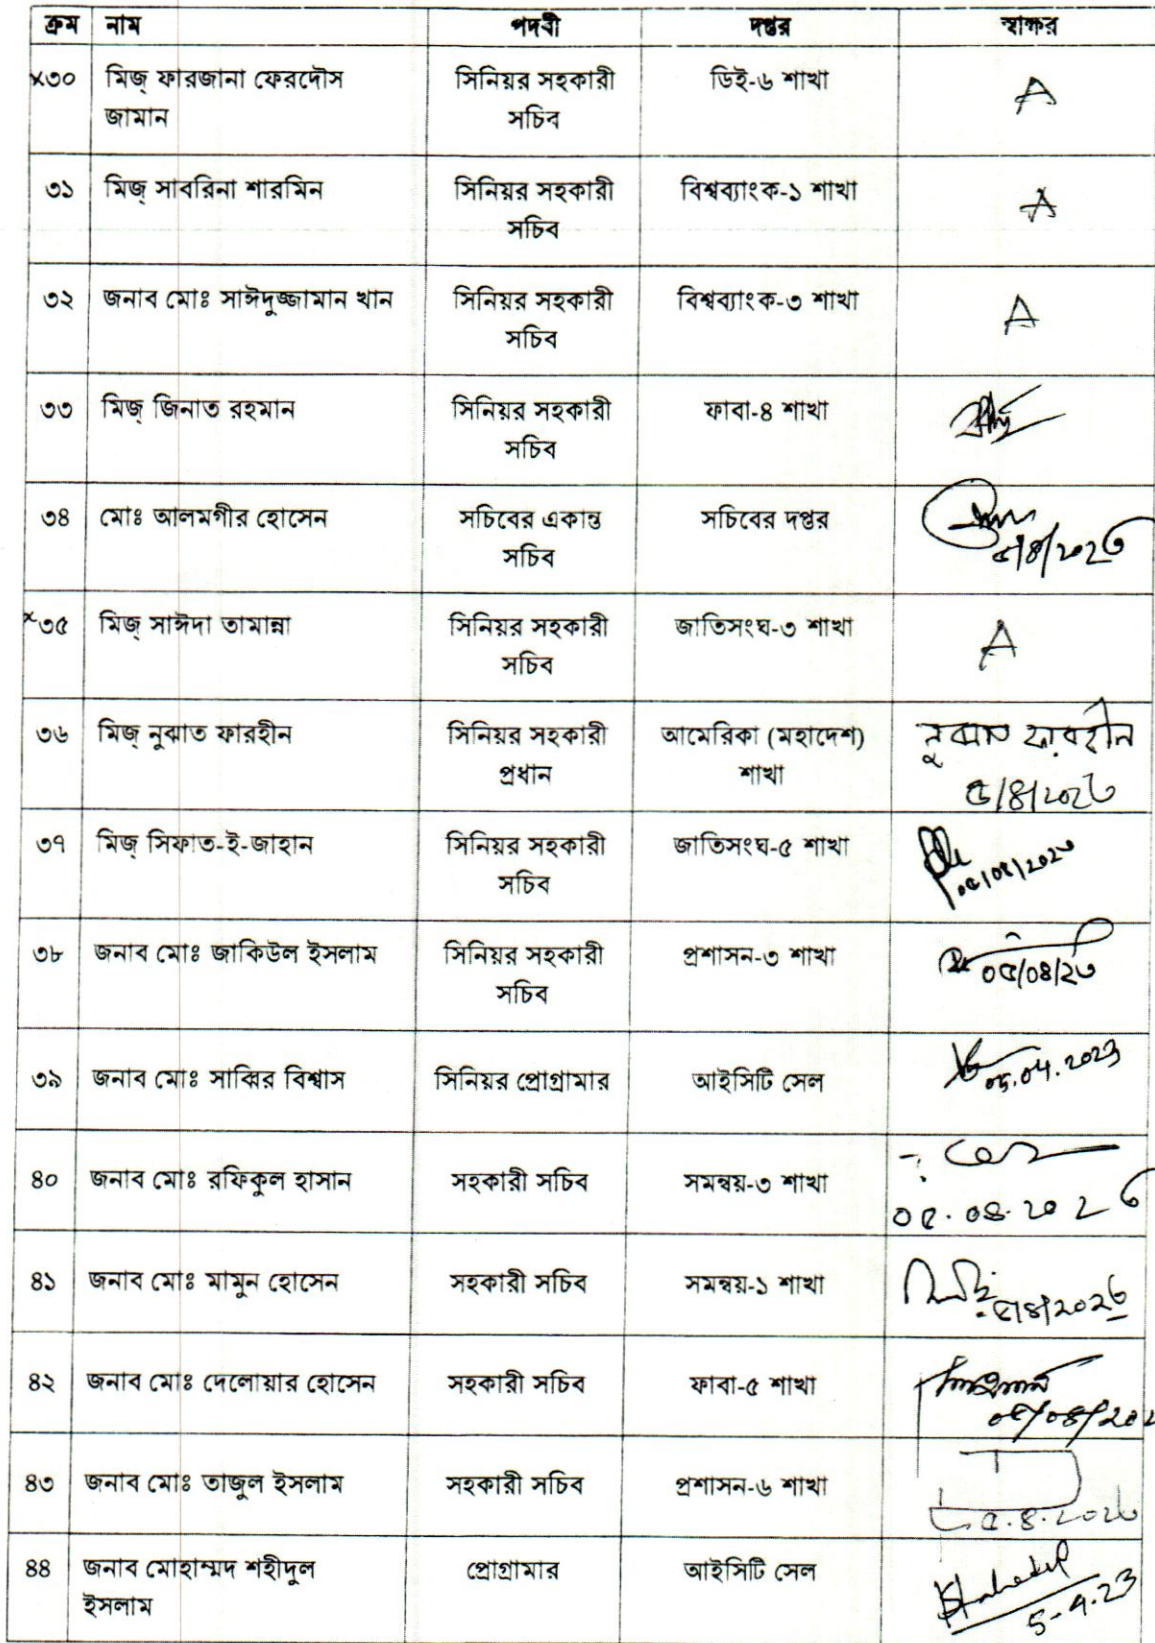 ক্রম নাম পদবী দপ্তর স্বাক্ষর
x৩০ মিজ্ ফারজানা ফেরদৌস সিনিয়র সহকারী ডিই-৬ শাখা A
জামান সচিব
৩১ মিজ্ সাবরিনা শারমিন সিনিয়র সহকারী বিশ্বব্যাংক-১ শাখা A
সচিব
৩২ জনাব মোঃ সাঈদুজ্জামান খান সিনিয়র সহকারী বিশ্বব্যাংক-৩ শাখা A
সচিব
৩৩ মিজ্ জিনাত রহমান সিনিয়র সহকারী ফাবা-৪ শাখা
সচিব
৩৪ মোঃ আলমগীর হোসেন সচিবের একান্ত সচিবের দপ্তর
সচিব ৫/৪/২০২৩
x৩৫ মিজ্ সাঈদা তামান্না সিনিয়র সহকারী জাতিসংঘ-৩ শাখা A
সচিব
৩৬ মিজ্ নুঝাত ফারহীন সিনিয়র সহকারী আমেরিকা (মহাদেশ) নুঝাত ফারহীন
প্রধান শাখা ৫/৪/২০২৩
৩৭ মিজ্ সিফাত-ই-জাহান সিনিয়র সহকারী জাতিসংঘ-৫ শাখা
সচিব ০৫/০৪/২০২৩
৩৮ জনাব মোঃ জাকিউল ইসলাম সিনিয়র সহকারী প্রশাসন-৩ শাখা ০৫/০৪/২৩
সচিব
৩৯ জনাব মোঃ সাব্বির বিশ্বাস সিনিয়র প্রোগ্রামার আইসিটি সেল 05.04.2023
৪০ জনাব মোঃ রফিকুল হাসান সহকারী সচিব সমন্বয়-৩ শাখা
০৫.০৪.২০২৩
৪১ জনাব মোঃ মামুন হোসেন সহকারী সচিব সমন্বয়-১ শাখা ৫/৪/২০২৩
৪২ জনাব মোঃ দেলোয়ার হোসেন সহকারী সচিব ফাবা-৫ শাখা
০৫/০৪/২০২
৪৩ জনাব মোঃ তাজুল ইসলাম সহকারী সচিব প্রশাসন-৬ শাখা
৫.৪.২০২৩
৪৪ জনাব মোহাম্মদ শহীদুল প্রোগ্রামার আইসিটি সেল Shahedul
ইসলাম 5-4-23